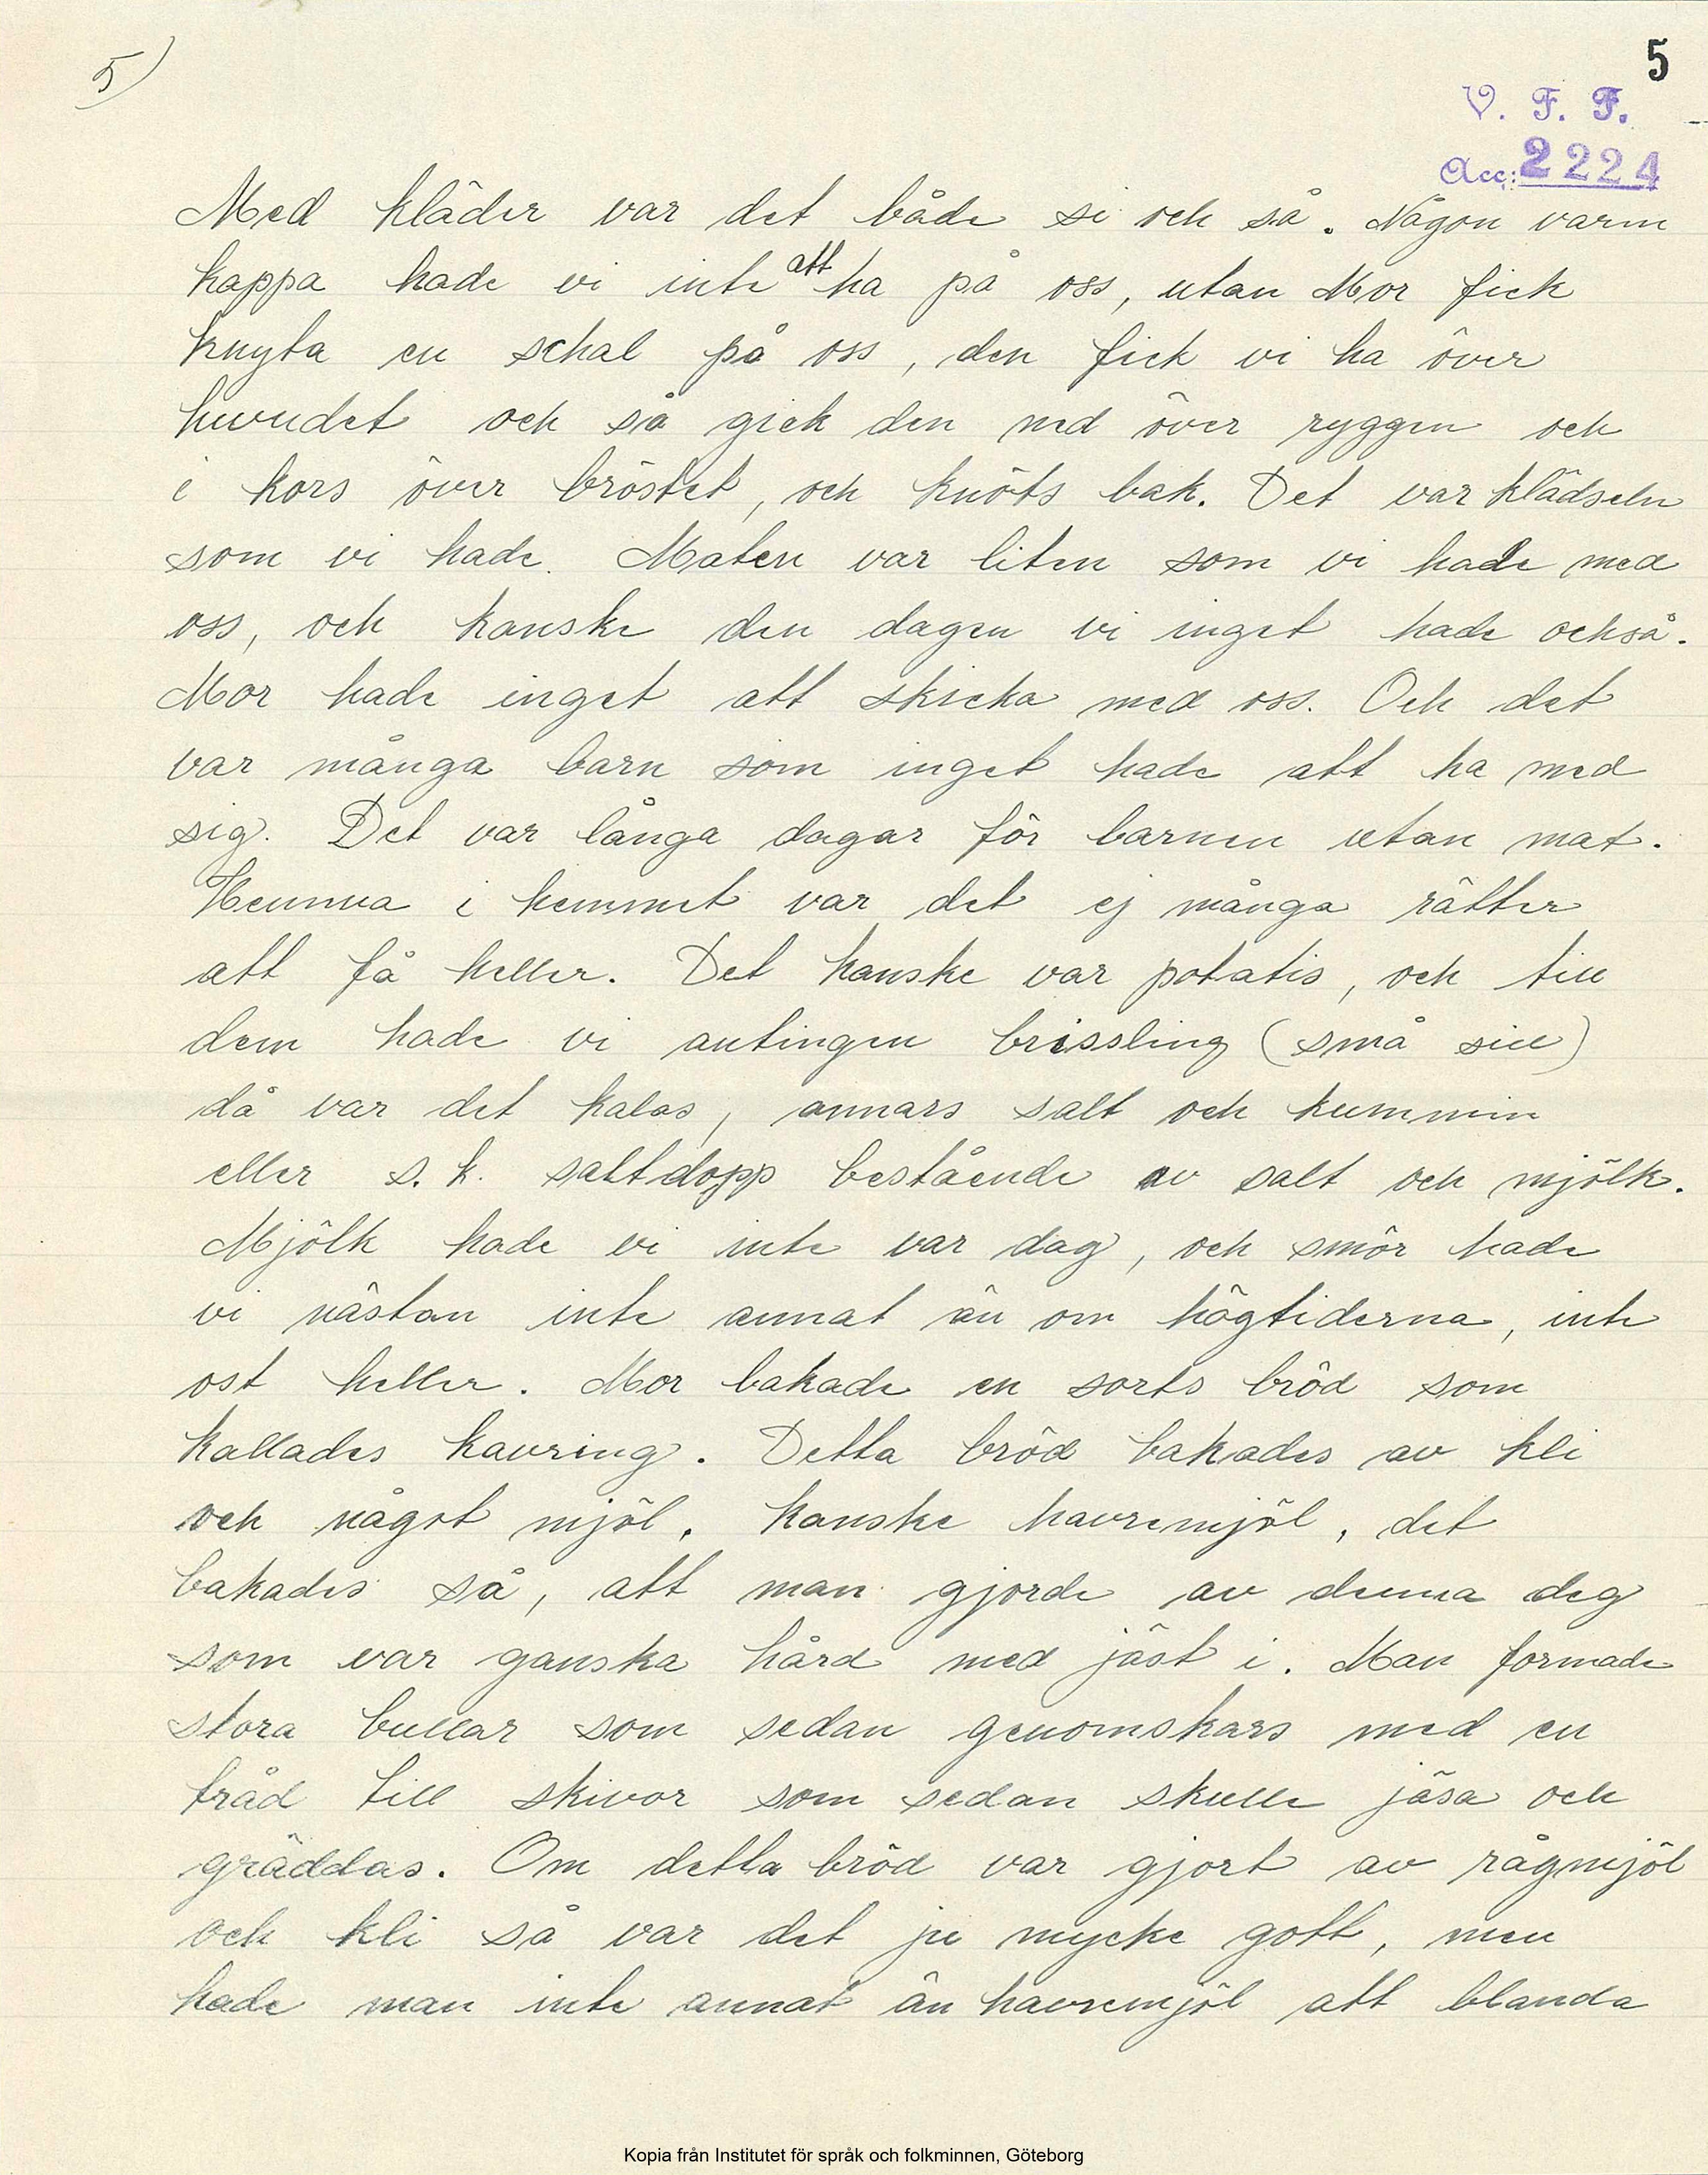 5)
5
V. F. F.
Acc: 2224
Med kläder var det både si och så. Någon varm
kappa hade vi inte att ha på oss, utan Mor fick
knyta en schal på oss, den fick vi ha över
huvudet och så gick den ned över ryggen och
i kors över bröstet, och knöts bak. Det var klädseln
som vi hade. Maten var liten som vi hade med
oss, och kanske den dagen vi inget hade också.
Mor hade inget att skicka med oss. Och det
var många barn som inget hade att ha med
sig. Det var långa dagar för barnen utan mat.
Hemma i hemmet var det ej många rätter
att få heller. Det kanske var potatis, och till
dem hade vi antingen brissling (små sill)
då var det kalas, annars salt och kummin
eller s. k. saltdopp bestående av salt och mjölk.
Mjölk hade vi inte var dag, och smör hade
vi nästan inte annat än om högtiderna, inte
ost heller. Mor bakade en sorts bröd som
kallades kavring. Detta bröd bakades av kli
och något mjöl. Kanske havremjöl, det
bakades så, att man gjorde av denna deg
som var ganska hård med jäst i. Man formade
stora bullar som sedan genomskars med en
tråd till skivor som sedan skulle jäsa och
gräddas. Om detta bröd var gjort av rågmjöl
och kli så var det ju mycke gott, men
hade man inte annat än havremjöl att blanda
Kopia från Institutet för språk och folkminnen, Göteborg